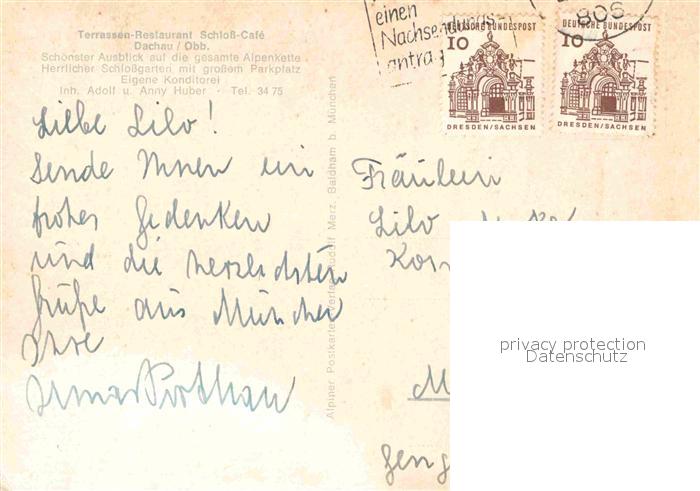 Terrassen-Restaurant Schloß-Café
Dachau / Obb.
Schönster Ausblick auf die gesamte Alpenkette
Herrlicher Schloßgarten mit großem Parkplatz
Eigene Konditorei
Inh. Adolf u. Anny Huber - Tel. 34 75
einen
Nachsendungs-
antrag
806
10
DEUTSCHE BUNDESPOST
DRESDEN/SACHSEN
10
DEUTSCHE BUNDESPOST
DRESDEN/SACHSEN
Liebe Lilo!
Sende Ihnen ein
frohes Gedenken
und die herzlichsten
Grüße aus München
Ihre
Alpiner Postkarten-Verlag Rudolf Merz, Baldham b. München
Fräulein
Lilo
privacy protection
Datenschutz